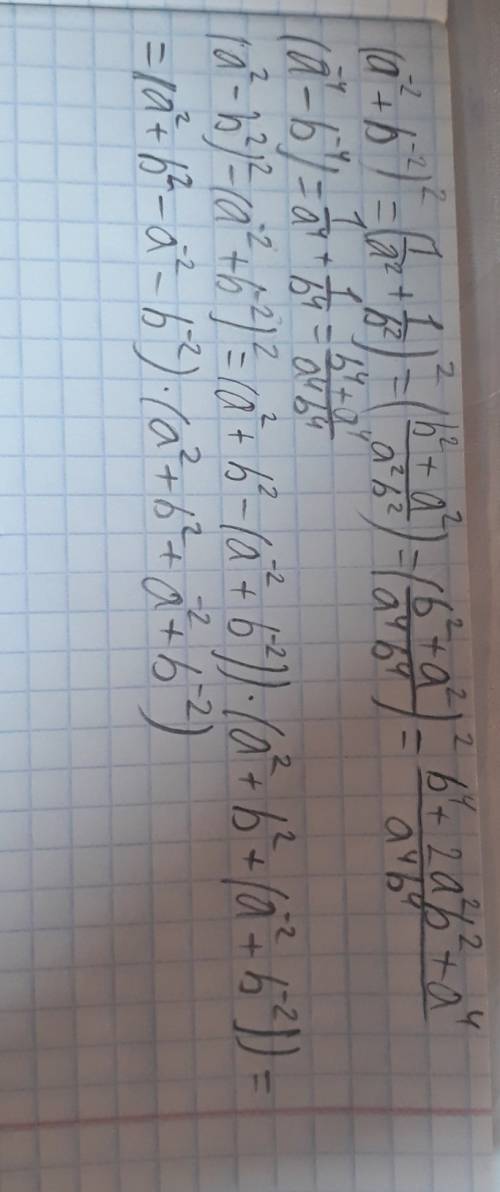 (a⁻² + b⁻²)² = (1/a² + 1/b²)² = ((b² + a²)/(a²b²)) = ((b² + a²)²/(a⁴b⁴)) = (b⁴ + 2a²b² + a⁴)/(a⁴b⁴)
(a⁻⁴ - b⁻⁴) = 1/a⁴ + 1/b⁴ = (b⁴ + a⁴)/(a⁴b⁴)
(a² - b²)² - (a⁻² + b⁻²)² = (a² + b² - (a⁻² + b⁻²)) · (a² + b² + (a⁻² + b⁻²)) =
= (a² + b² - a⁻² - b⁻²) · (a² + b² + a⁻² + b⁻²)